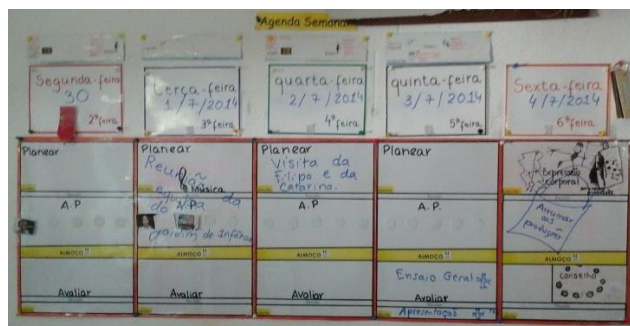 Agenda Semanal
Segunda-feira
30
2ª feira
Terça-feira
1/7/2014
3ª feira
quarta-feira
2/7/2014
4ª feira
quinta-feira
3/7/2014
5ª feira
Sexta-feira
4/7/2014
6ª feira
Planear
A.P.
ALMOÇO
Avaliar
Planear
Música
A.P.
Jardim de Infância
ALMOÇO
Avaliar
Planear
Visita da
Filipa e da
Catarina.
A.P.
ALMOÇO
Avaliar
Planear
A.P.
ALMOÇO
Ensaio Geral
Avaliar
Apresentação
Expressão
corporal
Arrumar
as
produções
ALMOÇO
Conselho